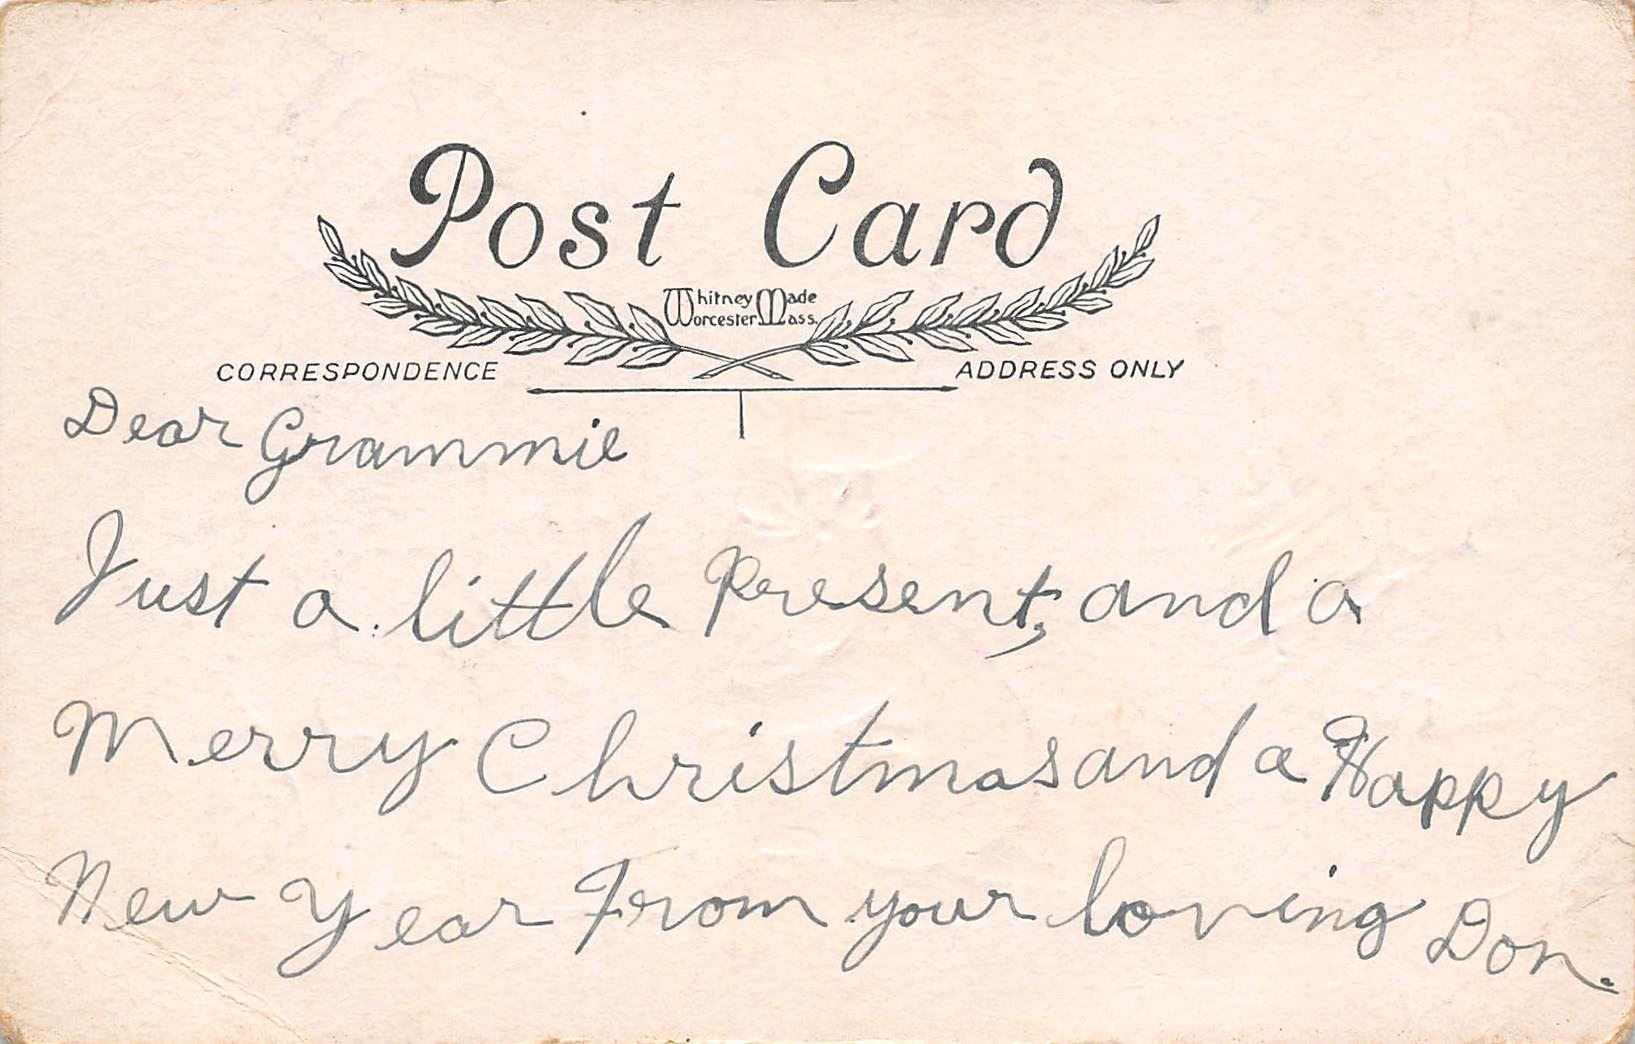 Post Card
Whitney Made
Worcester, Mass.
CORRESPONDENCE
ADDRESS ONLY
Dear Grammie
Just a little Present, and a
Merry Christmas and a Happy
New Year From your loving Don.